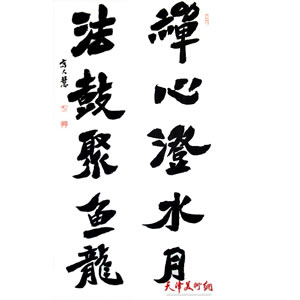 禪心澄水月
法鼓聚鱼龍
天津美术网